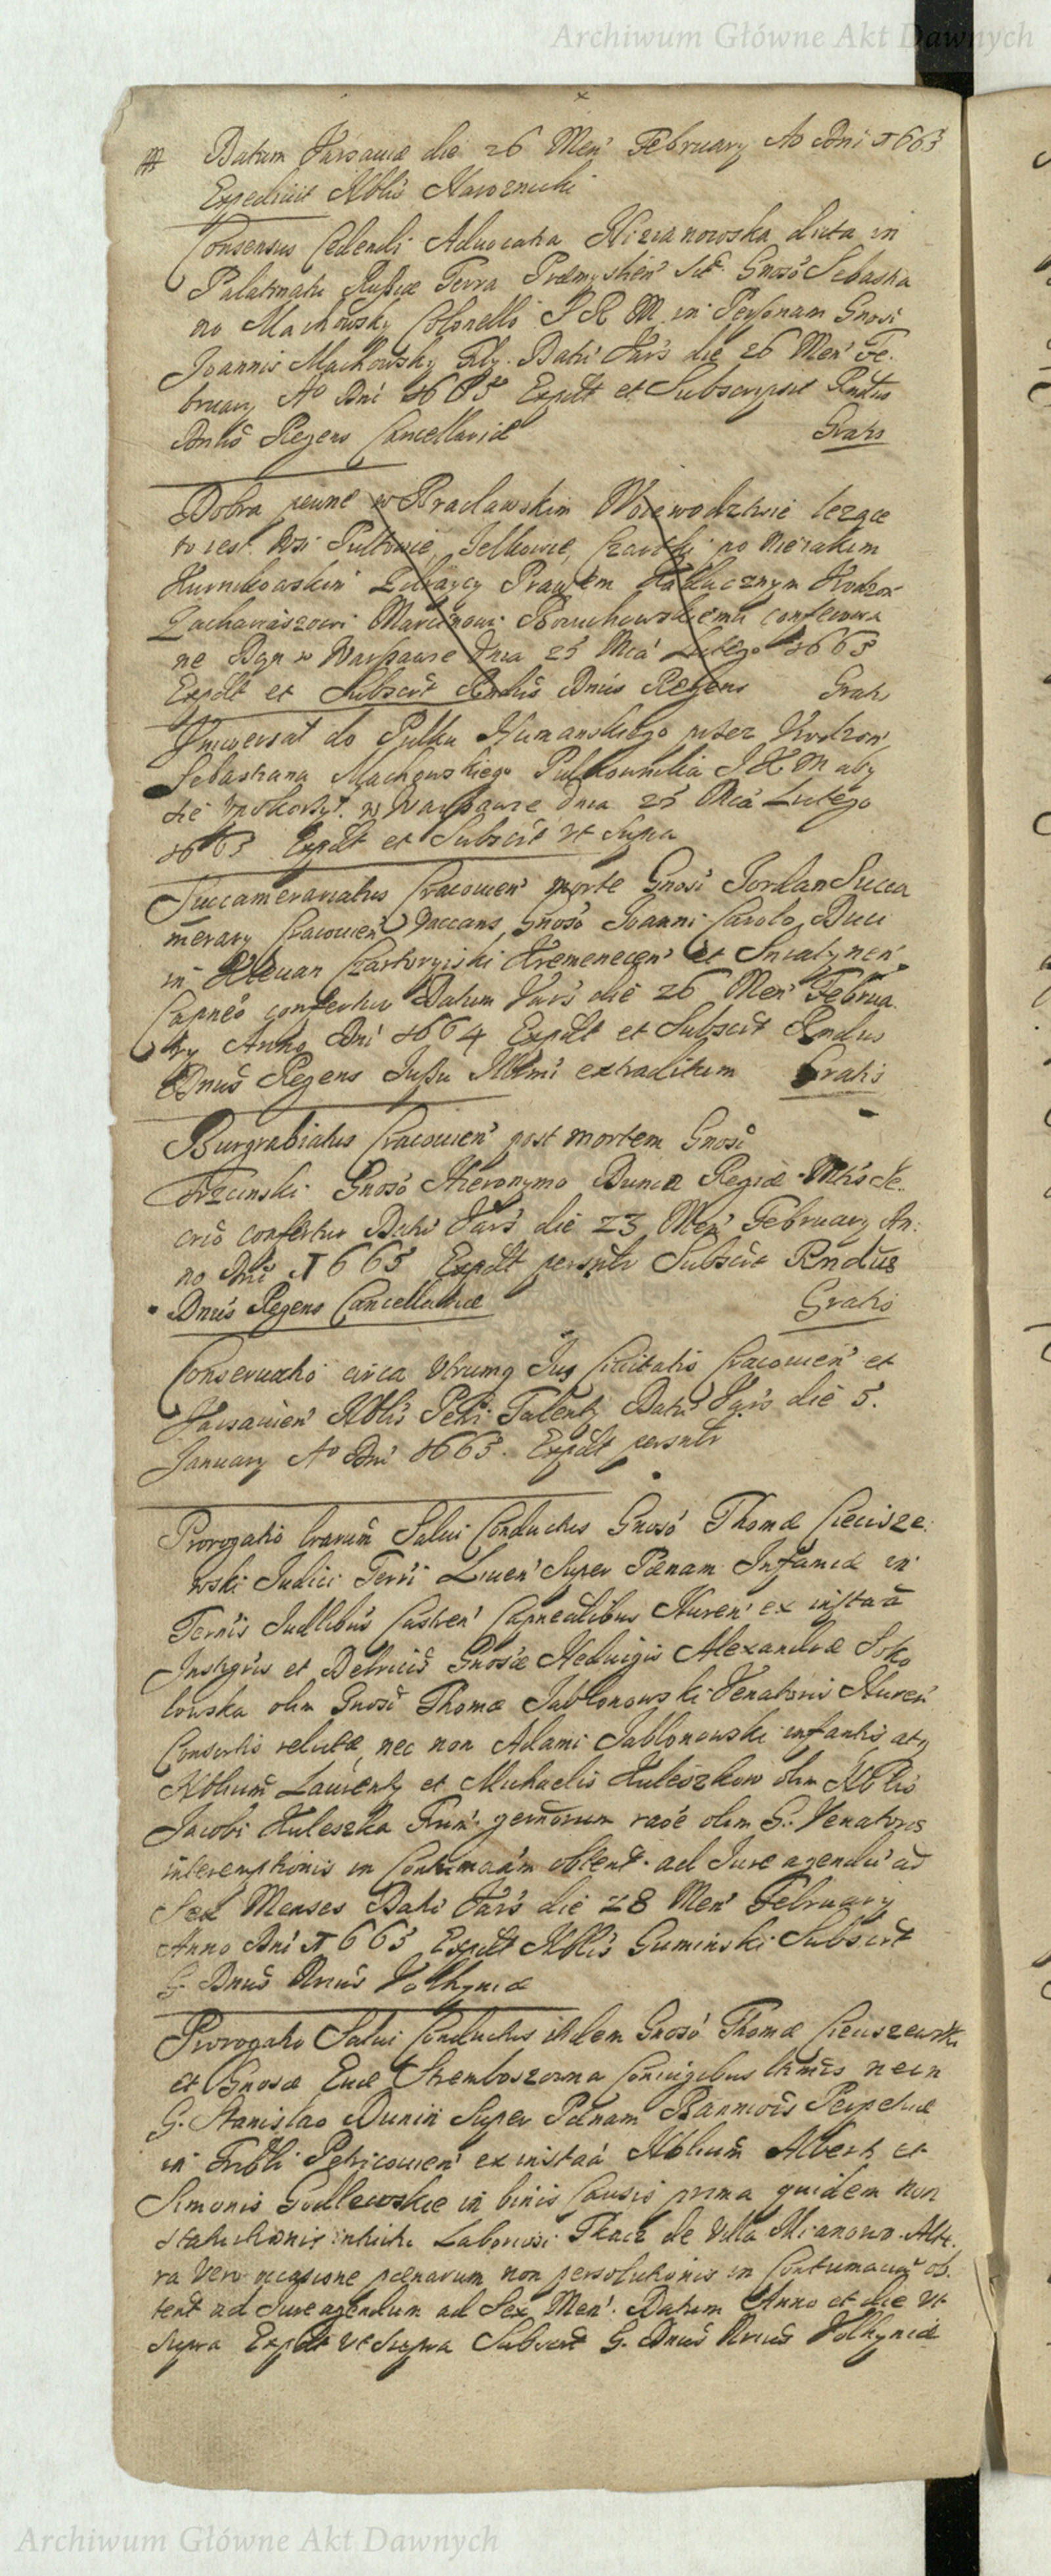 Archiwum Główne Akt Dawnych
Datum Varsaviæ die 26 Men' February Ao Dni 1663
Expedivit Nblis
Consensus Cedendi Advocatia dicta in
Palatinatu Russiæ Terra Præmyslien' Gnoso Sebastia
no Machowsky Colonello S R M in Personam Gnosi
Joannis Machowsky Dati Vars die 26 Men' Fe-
bruary Ao Dni 1663 Expdt et Subscripsit Rndus
Dnus Regens Cancellariæ Gratis
Dobra pewne w Braclawskim Woiewodztwie lezące
to iest Wsi po nieiakim
Prawem Kaducznym Urodzon
Zachariaszowi Marcinowi conferowa
ne Dan w Warszawie dnia 25 Mca Lutego 1663
Expdt et Subscrt Rndus Dnus Regens Gratis
Uniwersał do Pułku Humanskiego przez Urodzon
Sebastiana Machowskiego Pułkownika J K M aby
sie w Warszawie dnia 25 Mca Lutego
1663 Expdt et Subscrt vt Supra
Succamerariatus Cracovien' morte Gnosi Jordan Succa
merary Cracovien' Vaccans Gnoso Joanni Carolo Duci
in Klevan Czartoryiski Kremenecen' et Sniatynen'
Capneo confertur Datum Vars die 26 Men' Februa
ry Anno Dni 1664 Expdt et Subscrt Rndus
Dnus Regens Jussu Illmi extraditum Gratis
Burgrabiatus Cracovien' post mortem Gnosi
Gnoso Hieronymo Regiæ Mtis Se-
crio confertur Datu Vars die 23 Men' February An-
no Dni 1663 Expdt persntr Subscrt Rndus
Dnus Regens Cancellariæ Gratis
Conservatio circa utrumq Jus Civitatis Cracovien' et
Varsavien' Nblis Petri Talenty Datu Vars die 5.
January Ao Dni 1663. Expdt persntr
Prorogatio lrarum Salvi Conductus Gnoso Thomæ Ciecisze-
wski Judici Terri Liven' Super Pœnam Infamiæ in
Terris Judlibus Castren' Capnealibus Nuren' ex instaa
Instigris et Delricis Gnosæ Hedvigis Alexandræ Soko
lowska olim Gnosi Thomæ Jablonowski Venatoris Nuren'
Consortis relictæ nec non Adami Jablonowski infantis atq
Nblium Laurenty et Michaelis Kuleszkow olim Nblis
Jacobi Kuleszka germorum raoe olim G. Venatoris
interemptionis in Contumaam obtent. ad Jure agendu ad
Sex Menses Dati Vars die 28 Men' February
Anno Dni 1663 Expdt Nblis Guminski Subscrt
G. Dnus Nrius Volhyniæ
Prorogatio Salvi Conductus itidem Gnoso Thomæ Cieciszewski
et Gnosæ Evæ Stremboszowna Coniugibus ltimis necn
G. Stanislao Dunin Super Pœnam Bannitois Perpetuæ
in Tribli Petricovien' ex instaa Nblium Alberti et
Simonis Godlewskie in binis Causis prima quidem non
statutionis Laboriosi Tkacz de Villa Mianowo Alte-
ra vero occasione pœnarum non persolutionis in Contumaciam ob-
tent ad Jure agendum ad Sex Men'. Datum Anno et die vt
supra Expdt vt supra Subscrt G. Dnus Nrius Volhyniæ
Archiwum Główne Akt Dawnych